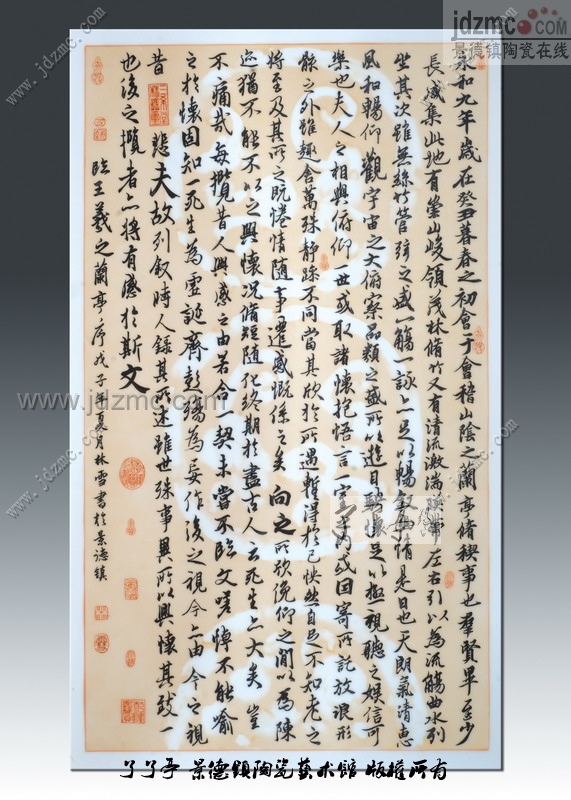 jdzmc.com
景德镇陶瓷在线
永和九年歲在癸丑暮春之初會于會稽山陰之蘭亭脩稧事也羣賢畢至少
長咸集此地有崇山峻領茂林脩竹又有清流激湍映帶左右引以為流觴曲水列
坐其次雖無絲竹管弦之盛一觴一詠亦足以暢敘幽情是日也天朗氣清惠
風和暢仰觀宇宙之大俯察品類之盛所以遊目騁懷足以極視聽之娛信可
樂也夫人之相與俯仰一世或取諸懷抱悟言一室之內或因寄所託放浪形
骸之外雖趣舍萬殊靜躁不同當其欣於所遇暫得於己怏然自足不知老之
將至及其所之既惓情隨事遷感慨係之矣向之所欣俛仰之間以為陳
迹猶不能不以之興懷況脩短隨化終期於盡古人云死生亦大矣豈
不痛哉每攬昔人興感之由若合一契未嘗不臨文嗟悼不能喻
之於懷固知一死生為虛誕齊彭殤為妄作後之視今亦由今之視
昔悲夫故列敘時人錄其所述雖世殊事異所以興懷其致一
也後之攬者亦將有感於斯文
臨王羲之蘭亭序戊子年夏月林雪書於景德鎮
www.jdzmc.com
了了亭 景德鎮陶瓷藝术館 版權所有